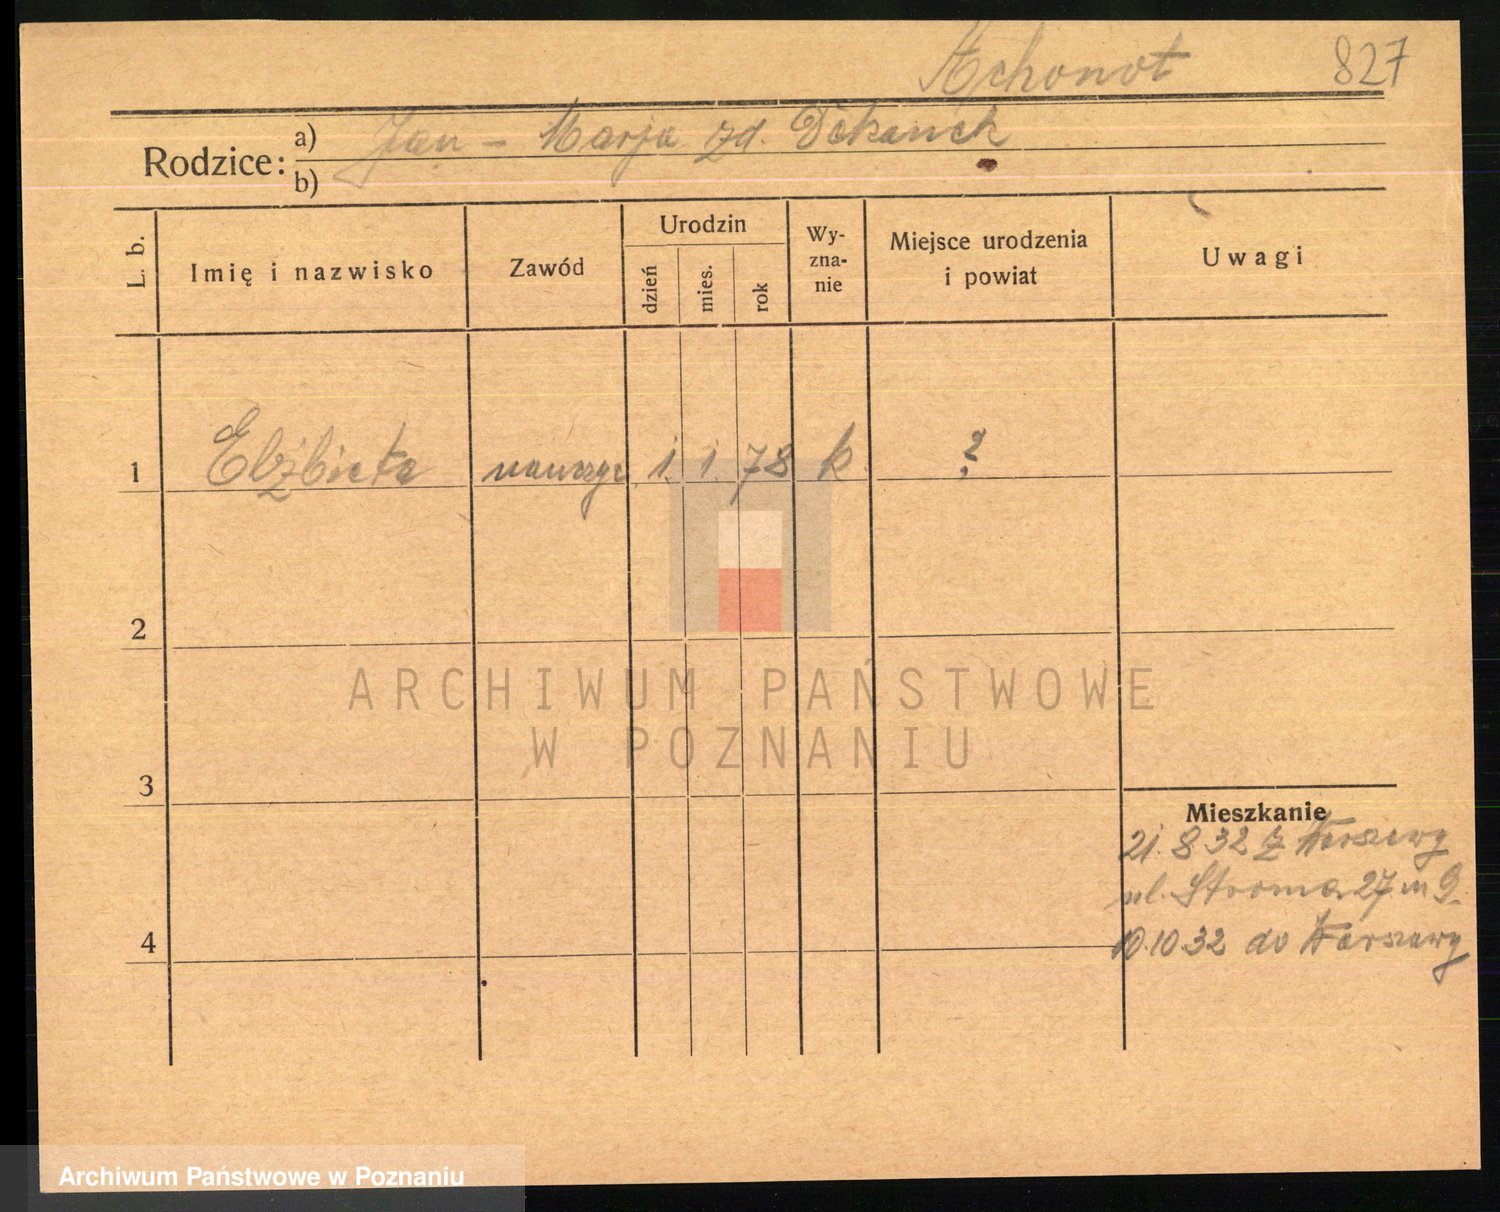 Achonot 827
Rodzice: a) Jan - Marja zd. Dekanek
b)
L. b. Imię i nazwisko Zawód Urodzin dzień mies. rok Wy-zna-nie Miejsce urodzenia i powiat Uwagi
1 Elżbieta nauczyc 1. 1. 78 k. ?
2
ARCHIWUM PAŃSTWOWE
W POZNANIU
3
Mieszkanie
21. 8 32 z Warszawy
ul. Stroma 27 m 9.
4
10.10.32 do Warszawy
Archiwum Państwowe w Poznaniu